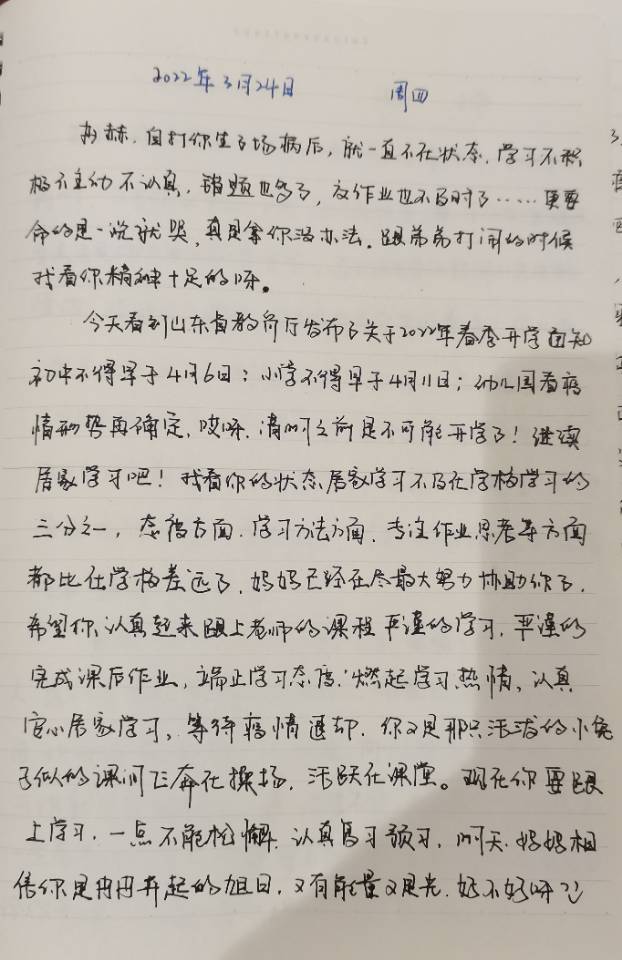 2022年3月24日 周四
赫,自打你生了场病后,就一直不在状态,学习不积
极不主动不认真,错题也多了,交作业也不及时了……更要
命的是一说就哭,真是拿你没办法。跟弟弟打闹的时候
我看你精神十足的呀。
今天看到山东省教育厅发布了关于2022年春季开学通知
初中不得早于4月6日;小学不得早于4月11日;幼儿园看疫
情形势再确定,哎呀,清明之前是不可能开学了!继续
居家学习吧!我看你的状态居家学习不及在学校学习的
三分之一,态度方面,学习方法方面,专注作业思考等方面
都比在学校差远了,妈妈已经在尽最大努力协助你了,
希望你认真起来跟上老师的课程严谨的学习,严谨的
完成课后作业,端正学习态度,燃起学习热情,认真
安心居家学习,等待疫情退却,你又是那只活泼的小兔
子似的课间飞奔在操场,活跃在课堂。现在你要跟
上学习,一点不能松懈,认真复习预习,明天,妈妈相
信你是冉冉升起的旭日,又有能量又是光,好不好呀?